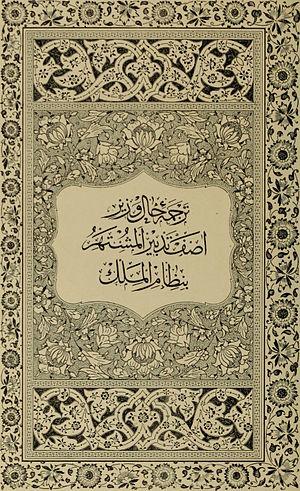 ترجمهٔ حال وزیر
آصف تدبیر المشتهر
بنظام الملک